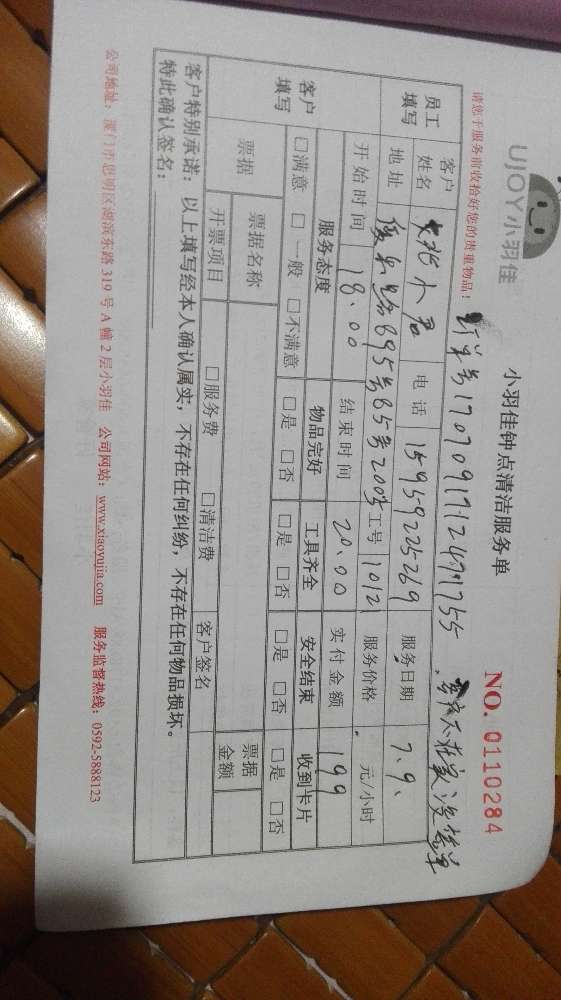 UJOY小羽佳
小羽佳钟点清洁服务单
NO. 0110284
请您于服务前收检好您的贵重物品!
单号17070917124771755
员工填写 客户姓名 电话 15959225269 服务日期 7.9.
地址 895号85号200 工号 1012 服务价格 元/小时
开始时间 18.00 结束时间 20.00 实付金额 199
客户填写 服务态度 物品完好 工具齐全 安全结束 收到卡片
□满意 □一般 □不满意 □是 □否 □是 □否 □是 □否 □是 □否
票据 票据名称 客户签名 票据金额
开票项目 □服务费 □清洁费
客户特别承诺:以上填写经本人确认属实,不存在任何纠纷,不存在任何物品损坏。
特此确认签名:
公司地址:厦门市思明区湖滨东路319号A幢2层小羽佳 公司网站:www.xiaoyujia.com 服务监督热线:0592-5888123